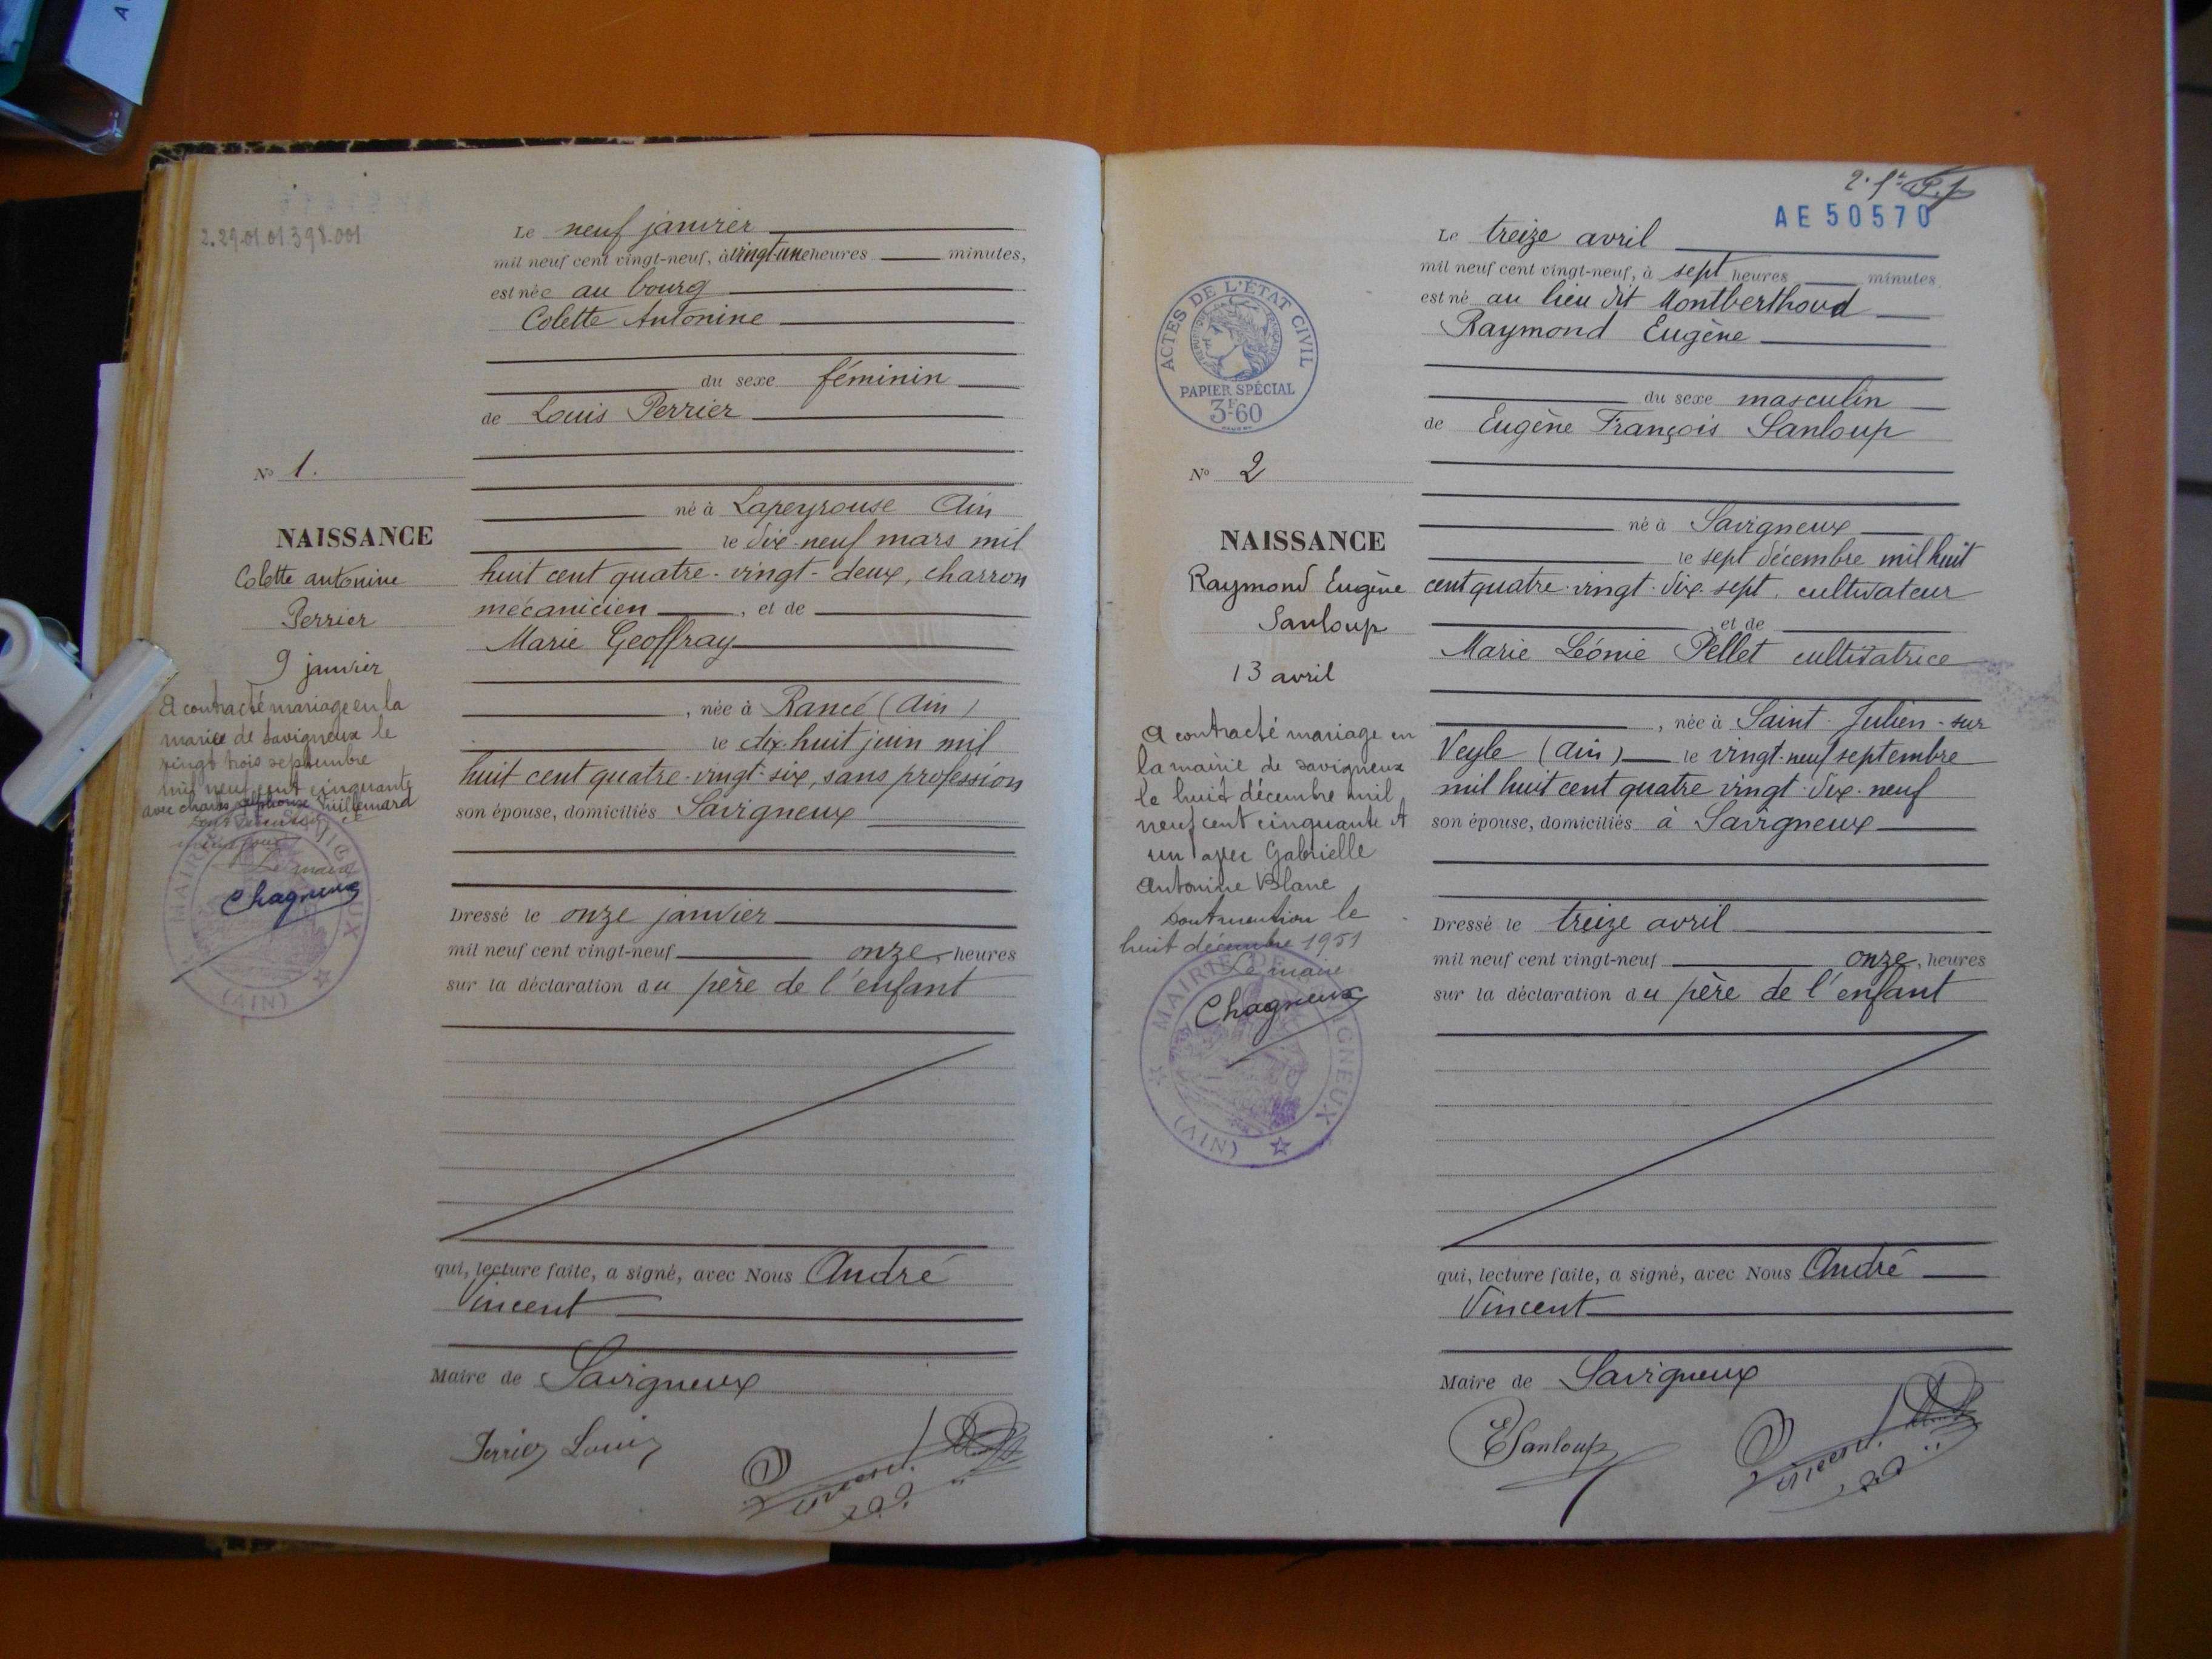 2.29.01.01.398.001
Le neuf janvier
mil neuf cent vingt-neuf, à vingt-une heures minutes,
est née au bourg
Colette Antonine
du sexe féminin
de Louis Perrier
né à Lapeyrouse Ain
le dix-neuf mars mil
huit cent quatre-vingt-deux, charron
mécanicien, et de
Marie Geoffray
, née à Rancé (Ain)
le dix-huit juin mil
huit cent quatre-vingt-six, sans profession
son épouse, domiciliés Savigneux
Dressé le onze janvier
mil neuf cent vingt-neuf onze heures
sur la déclaration du père de l'enfant
qui, lecture faite, a signé, avec Nous André
Vincent
Maire de Savigneux
Perrier Louis
Vincent
N° 1.
NAISSANCE
Colette Antonine
Perrier
9 janvier
A contracté mariage en la
mairie de Savigneux le
vingt trois septembre
mil neuf cent cinquante
avec
Le maire
Chagneux
MAIRIE
(AIN)
2.
AE 50570
Le treize avril
mil neuf cent vingt-neuf, à sept heures minutes
est né au lieu dit Montberthoud
Raymond Eugène
du sexe masculin
de Eugène François Sanloup
né à Savigneux
le sept décembre mil huit
cent quatre-vingt-dix-sept, cultivateur
et de
Marie Léonie Pellet cultivatrice
, née à Saint-Julien-sur
Veyle (Ain) le vingt-neuf septembre
mil huit cent quatre vingt-dix-neuf
son épouse, domiciliés à Savigneux
Dressé le treize avril
mil neuf cent vingt-neuf onze, heures
sur la déclaration du père de l'enfant
qui, lecture faite, a signé, avec Nous André
Vincent
Maire de Savigneux
ESanloup
Vincent
ACTES DE L'ÉTAT CIVIL
PAPIER SPÉCIAL
3F60
N° 2
NAISSANCE
Raymond Eugène
Sanloup
13 avril
A contracté mariage en
la mairie de Savigneux
le huit décembre mil
neuf cent cinquante et
un avec Gabrielle
Antonine Blanc
dont mention le
huit décembre 1951
Le maire
Chagneux
MAIRIE DE SAVIGNEUX
(AIN)